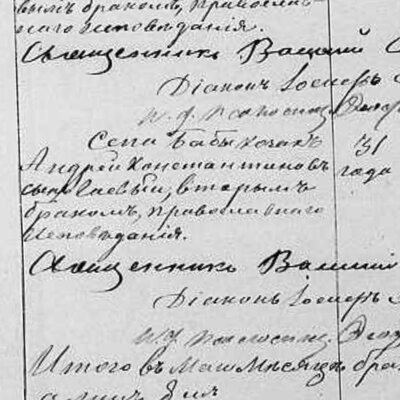 вымъ бракомъ, православ-
наго исповѣданія.
Священникъ Василій
Діаконъ Іосифъ
И. д. псаломщ.
Села Бабы козакъ 31
Андрей Константиновъ года
сынъ Гаевый, вторымъ
бракомъ, православнаго
исповѣданія.
Священникъ Василій
Діаконъ Іосифъ
И. д. псаломщ. Ѳеод
Итого въ Маѣ мѣсяцѣ бра